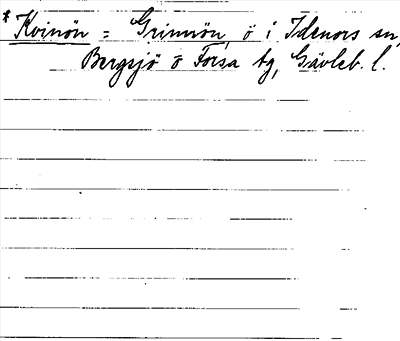 * Kvinön = Grimnön, ö i Idenors sn,
Bergsjö o Forsa tg, Gävleb. l.